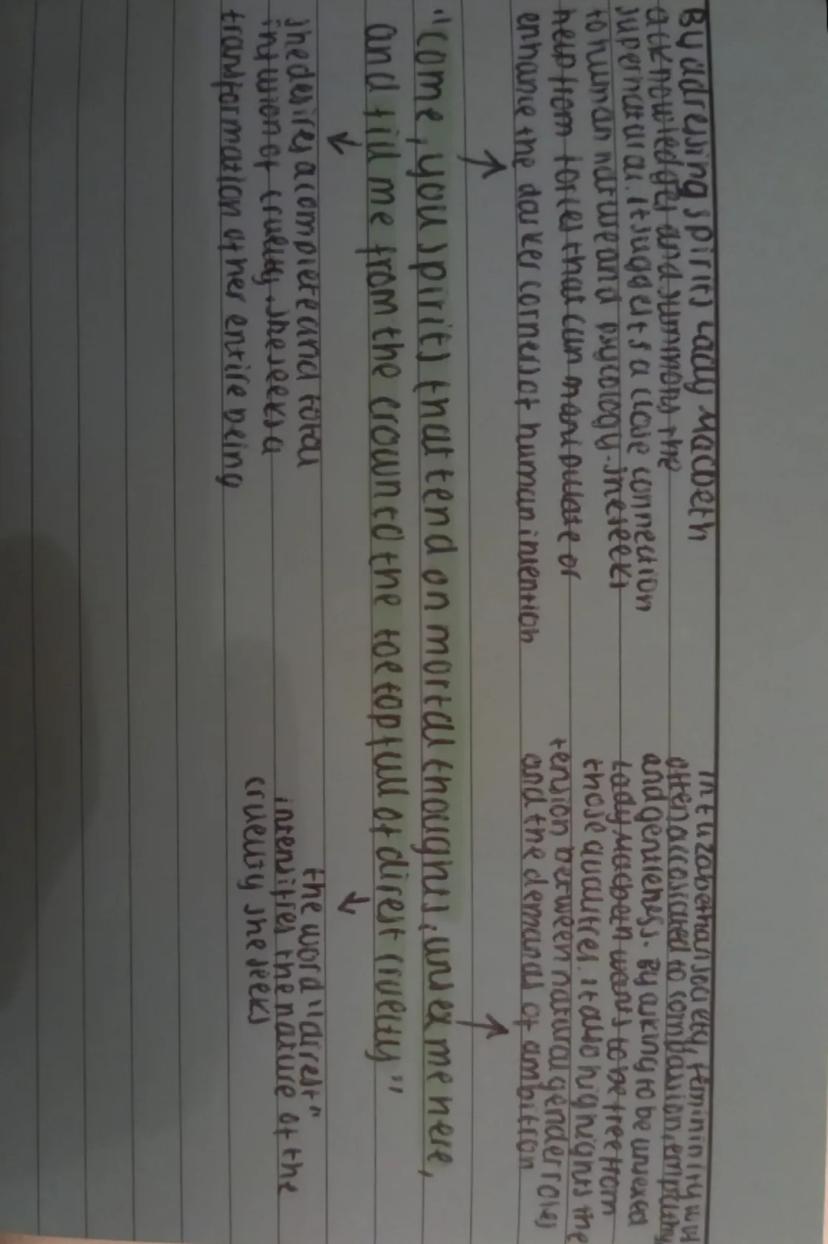 By adressing spirits Lady Macbeth
acknowledges and summons the
supernatural. It suggests a close connection
to human nature and psycology. She seeks
help from forces that can manipulate or
enhance the darker corners of human invention
In Elizabethan society, femininity was
often accosiated to compassion, empathy
and gentleness. By asking to be unsexed
Lady Macbeth wants to be free from
those qualities. It also highlights the
tension between natural gender roles
and the demands of ambition
"come, you spirits that tend on mortal thoughts, unsex me here,
and fill me from the crown to the toe top full of direst cruelty"
she desires a complete and total
infusion of cruelty. She seeks a
transformation of her entire being
the word "direst"
intensifies the nature of the
cruelty she seeks